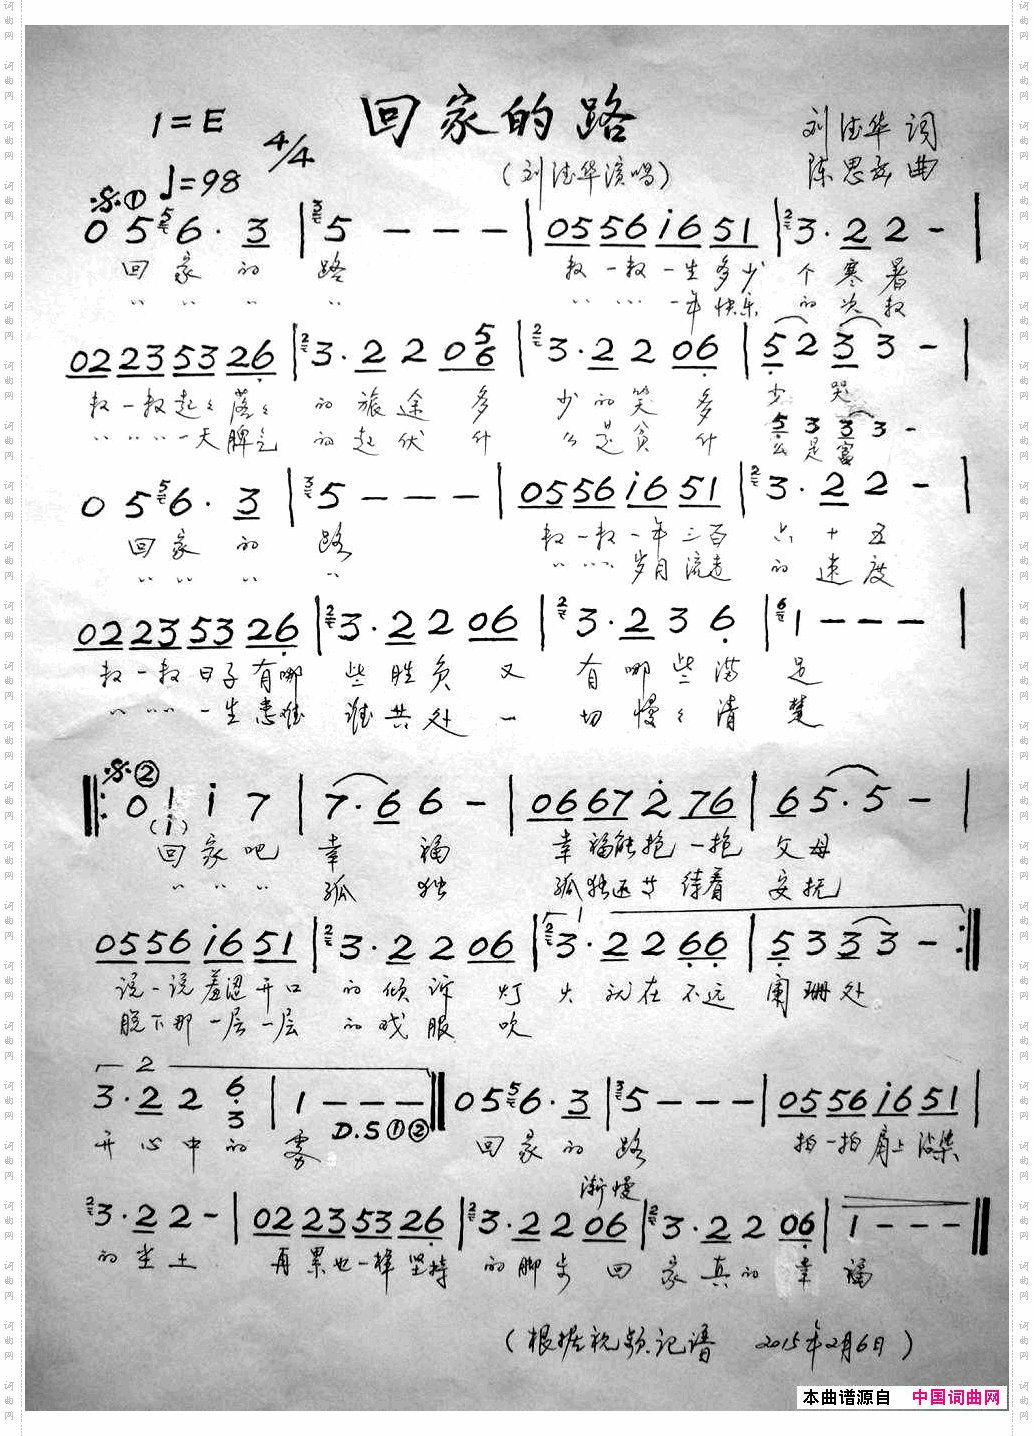 回家的路
1=E 4/4
♩=98
刘德华 词
(刘德华演唱)
陈思 曲
𝄋①
0 5 6· 3 | 5 - - - | 05 56 i6 51 | 3· 2 2 - |
回 家 的 路 数一数一生多少个寒暔
〃 〃 〃 〃 〃 〃〃 一年快乐的次数
02 23 53 26 | 3· 2 2 0 5 6 | 3· 2 2 06 | 5 2 3 3 - |
数一数起々落々的旅途 多少的笑多少哭
〃〃〃〃一天脾气的起伏 什么是贫什么是富
5 3 3 3 -
0 5 6· 3 | 5 - - - | 05 56 i6 51 | 3· 2 2 - |
回 家 的 路 数一数一年三百六十五
〃 〃 〃 〃 〃 〃〃 岁月流走的速度
02 23 53 26 | 3· 2 2 06 | 3· 2 3 6 | 1 - - - |
数一数日子有哪些胜负 又有哪些满足
〃 〃〃 一生患难谁共处 一切慢々清楚
𝄋②
‖: 0 i i 7 | 7· 6 6 - | 06 67 2 76 | 6 5· 5 - |
(i)
回家吧 幸福 幸福能抱一抱父母
〃 〃 〃 孤独 孤独还廿待着安抚
05 56 i6 51 | 3· 2 2 06 | 1 3· 2 2 66 | 5 3 3 3 - :‖
说一说羞涩开口的倾诉 灯火就在不远阑珊处
脱下那一层一层的戏服 吹
2
3· 2 2 6 3 | 1 - - - ‖ 0 5 6· 3 | 5 - - - | 05 56 i6 51 |
D.S①②
开心中的雾 回家的路 拍一拍肩上沾染
渐慢
3· 2 2 - | 02 23 53 26 | 3· 2 2 06 | 3· 2 2 06 | 1 - - - ‖
的尘土 再累也一样坚持的脚步 回家真的幸福
(根据视频记谱 2015年2月6日)
本曲谱源自 中国词曲网
词曲网